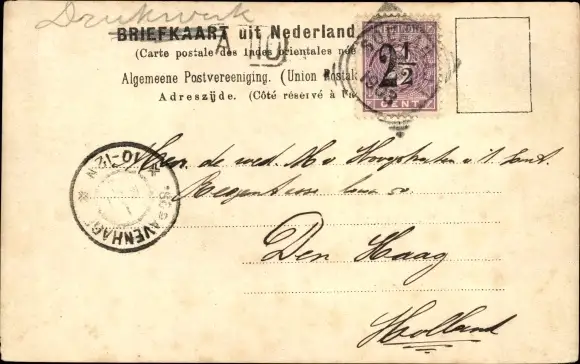 Drukwerk
BRIEFKAART uit Nederland
(Carte postale des Indes orientales née
Algemeene Postvereeniging. (Union Postal
Adreszijde. (Côté réservé à l'a
2 1/2
CENT
10-12 N
GRAVENHAG
de wed. M v Hoogstraten v
50
Den Haag
Holland